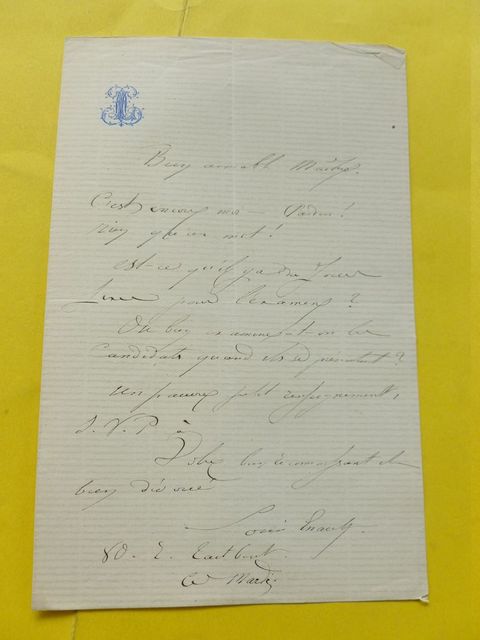 Bien aimable Maître.
C'est encore moi – Pardon!
rien qu'un mot!
est-ce qu'il y a des jours
fixes pour l'examens?
Ou bien examine-t-on les
candidats quand ils se présentent?
un pauvre petit renseignement,
S.V.P. à
Votre bien reconnaissant et
bien dévoué
Louis Enault.
80. R. Taitbout.
Ce Mardi.